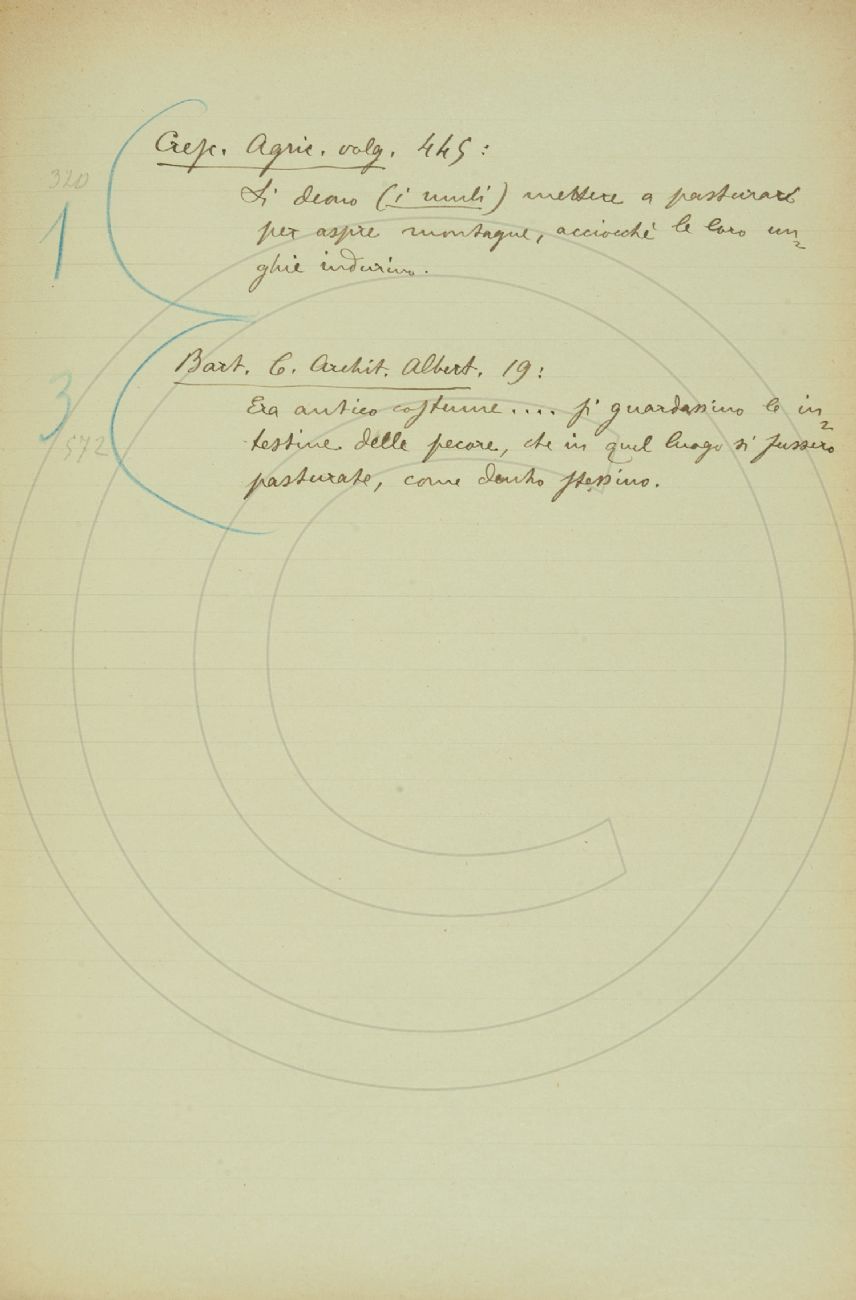 320
Cresc. Agric. volg. 445:
1
Si deono (i muli) mettere a pasturare
per aspre montagne, acciocché le loro un=
ghie indurino.
Bart. C. Archit. Albert. 19:
3
Era antico costume.... si guardassino le in=
testine delle pecore, che in quel luogo si fussero
572
pasturate, come dentro stessino.